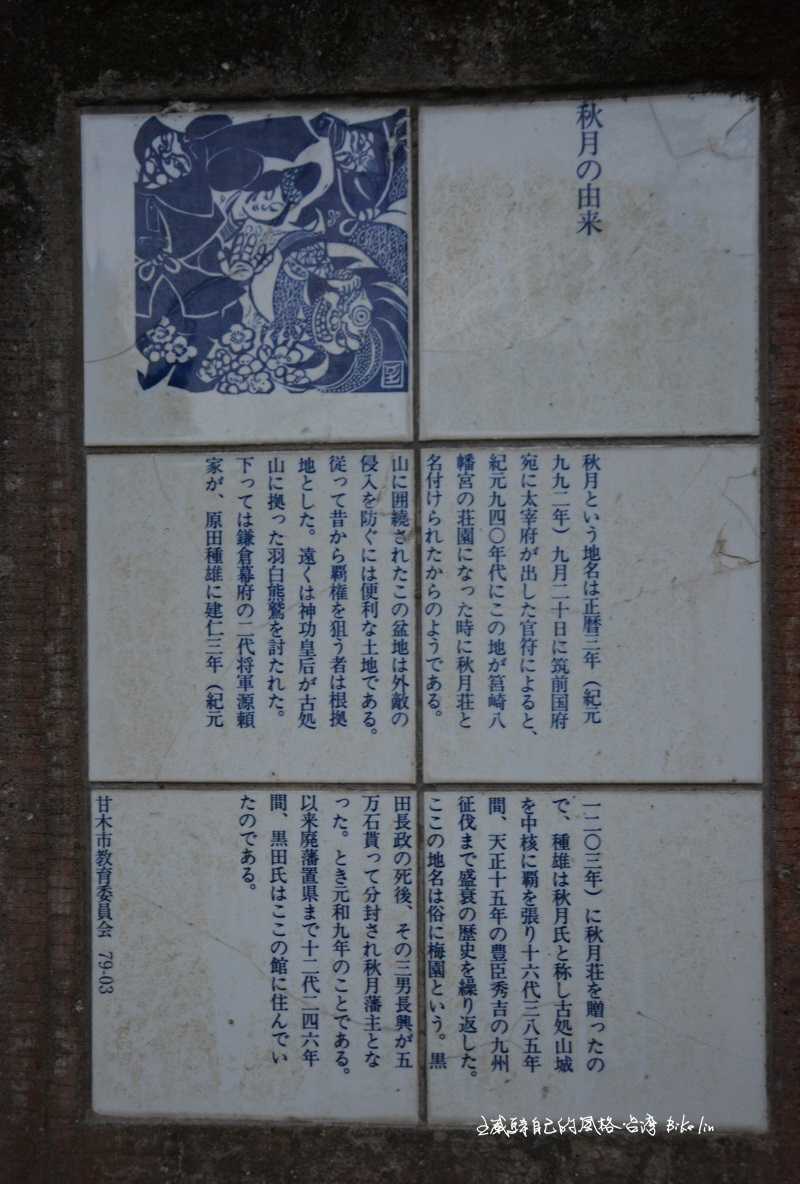 秋月の由来
秋月という地名は正暦三年（紀元
九九二年）九月二十日に筑前国府
宛に太宰府が出した官符によると、
紀元九四〇年代にこの地が筥崎八
幡宮の荘園になった時に秋月荘と
名付けられたからのようである。
山に囲繞されたこの盆地は外敵の
侵入を防ぐには便利な土地である。
従って昔から覇権を狙う者は根拠
地とした。遠くは神功皇后が古処
山に拠った羽白熊鷲を討たれた。
下っては鎌倉幕府の二代将軍源頼
家が、原田種雄に建仁三年（紀元
一二〇三年）に秋月荘を贈ったの
で、種雄は秋月氏と称し古処山城
を中核に覇を張り十六代三八五年
間、天正十五年の豊臣秀吉の九州
征伐まで盛衰の歴史を繰り返した。
ここの地名は俗に梅園という。黒
田長政の死後、その三男長興が五
万石貰って分封され秋月藩主とな
った。とき元和九年のことである。
以来廃藩置県まで十二代二四六年
間、黒田氏はここの館に住んでい
たのである。
甘木市教育委員会 79-03
自己的風格 台湾 Bike lin